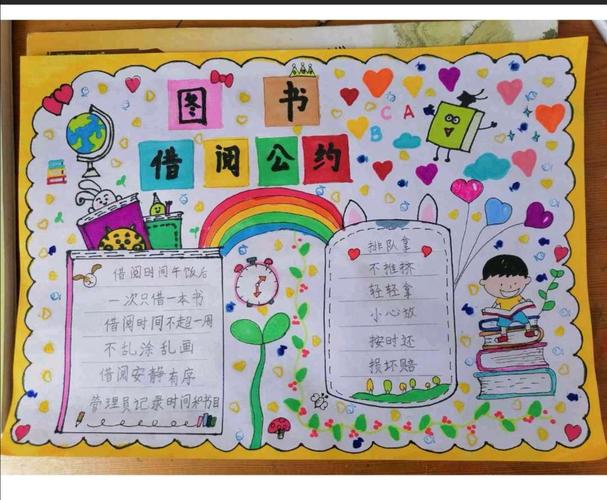 图书
借阅公约
C A
B
借阅时间午饭后
一次只借一本书
借阅时间不超一周
不乱涂乱画
借阅安静有序
管理员记录时间和书目
排队拿
不推挤
轻轻拿
小心放
按时还
损坏赔